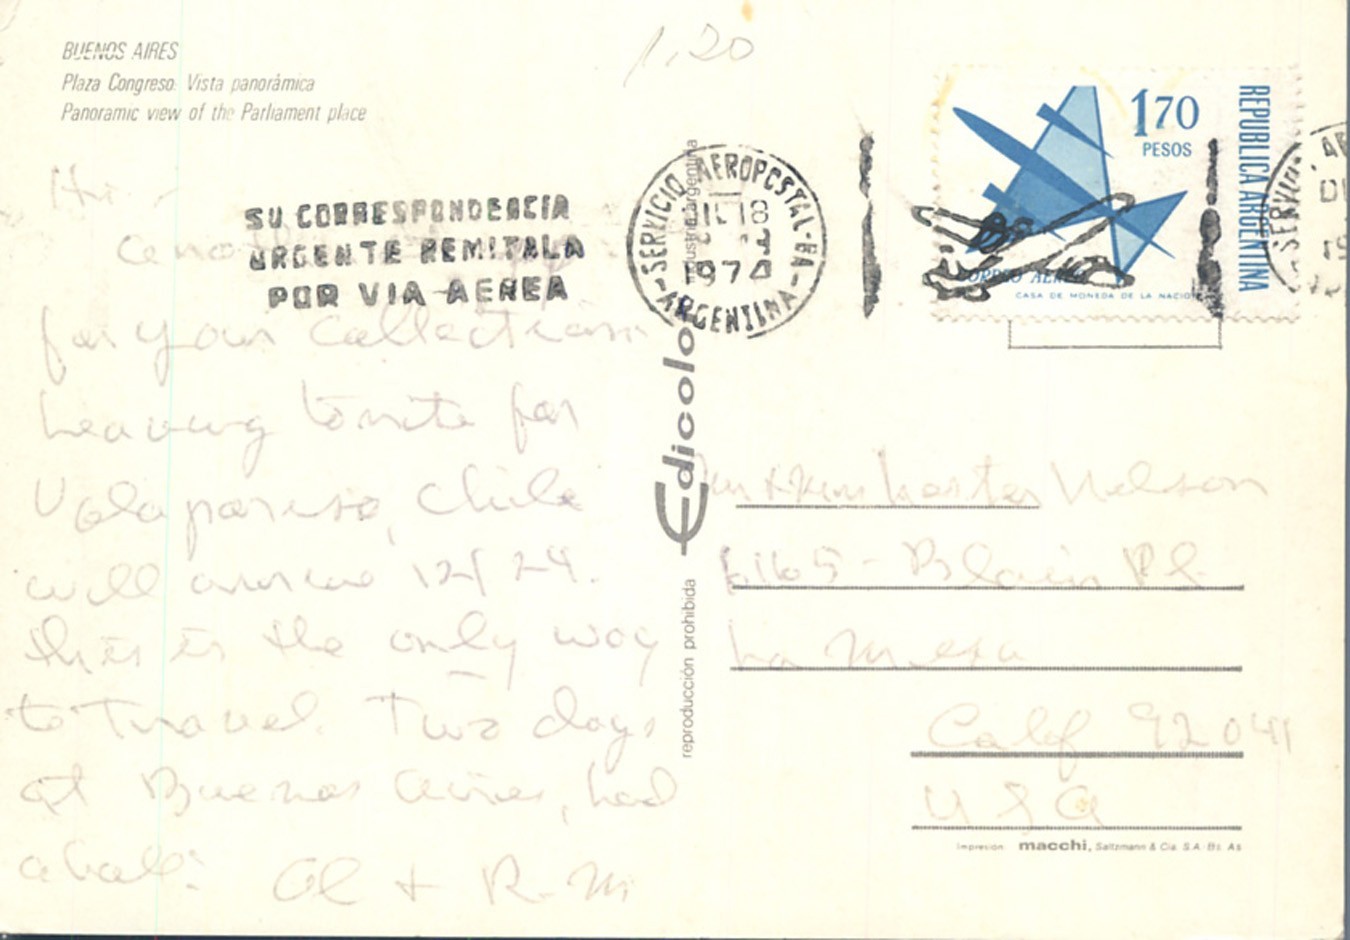 BUENOS AIRES
Plaza Congreso. Vista panorámica
Panoramic view of the Parliament place
1,20
Hi -
SU CORRESPONDENCIA
URGENTE REMITALA
POR VIA AEREA
for your collection
leaving tonite for
Valapariso, Chile
will arrive 12/29.
this is the only way
to Travel. Two days
at Buenos Aires, had
a ball! Al + R.M
industria argentina
Edicolor
reproducción prohibida
SERVICIO AEROPOSTAL-BA
DIC 18
1974
ARGENTINA
170
PESOS
REPUBLICA ARGENTINA
CORREO AEREO
CASA DE MONEDA DE LA NACION
Lester Nelson
6165 - Blain Pl.
La Mesa
Calif 92041
USA
Impresion macchi, Saltzmann & Cia. S.A. Bs. As